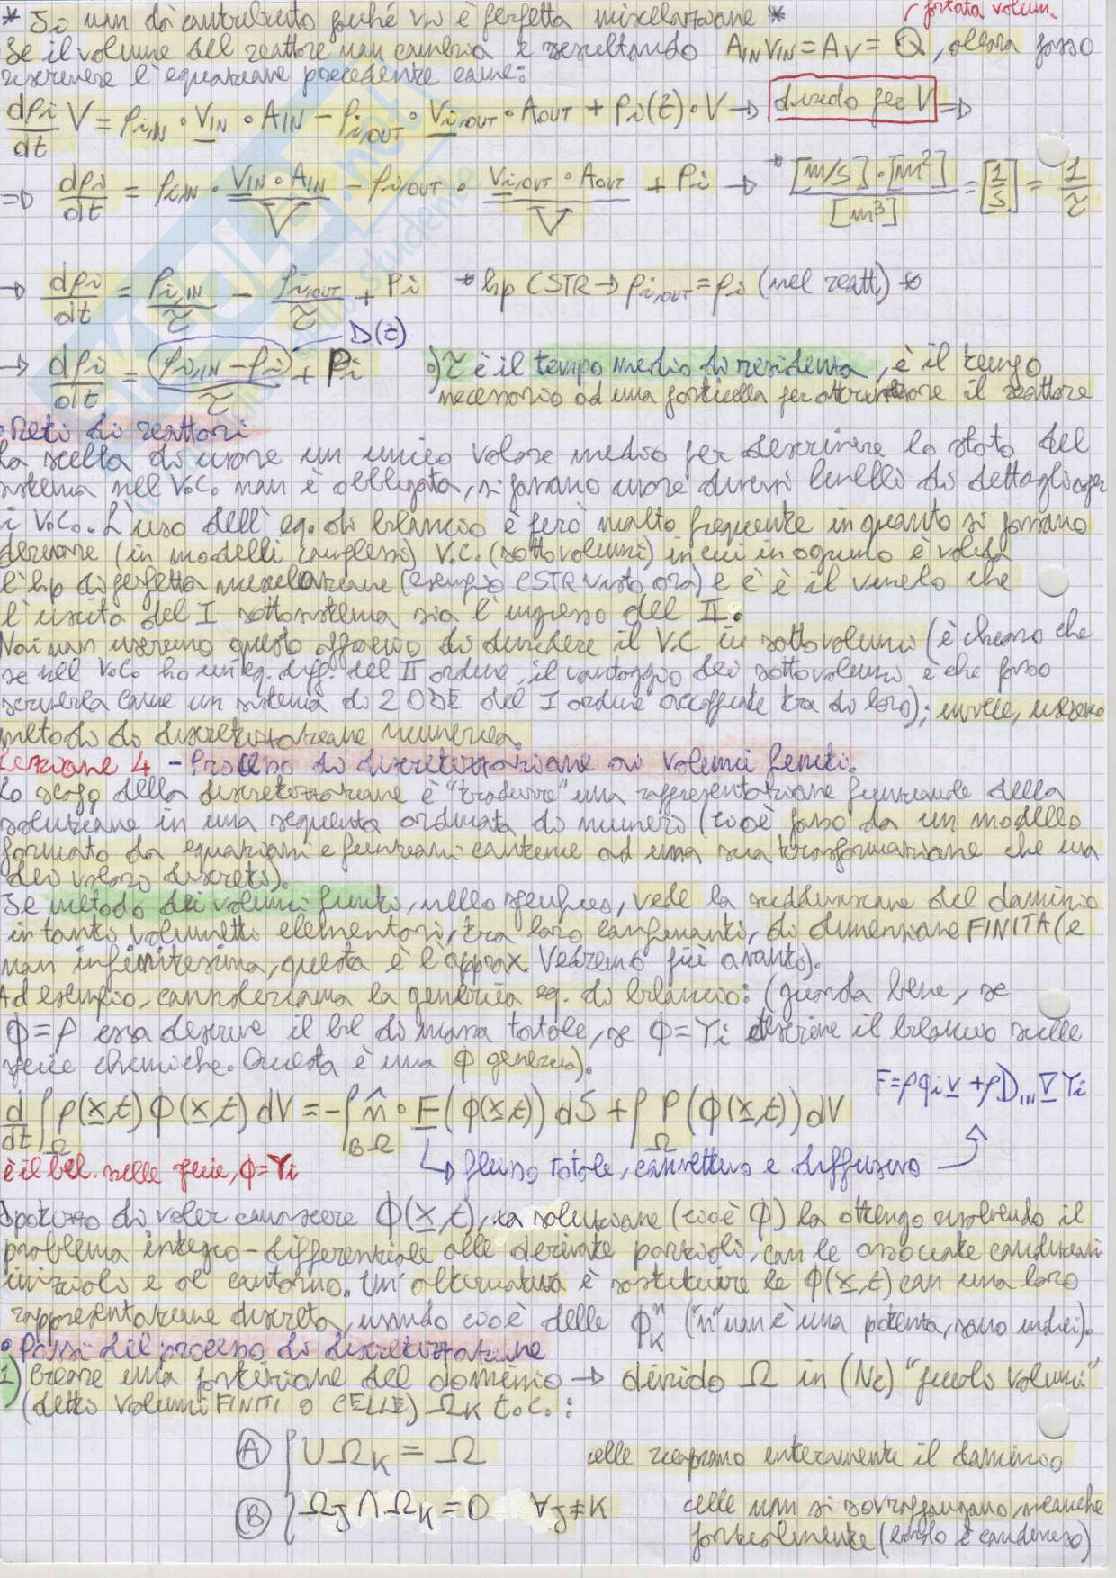 * Si non dà contributo poiché vi è perfetta miscelazione *
portata volum.
Se il volume del reattore non cambia e risultando A_IN V_IN = A_V = Q, allora posso
riscrivere l'equazione precedente come:
dρi/dt V = ρi,IN · V_IN · A_IN - ρi,OUT · Vi,OUT · A_OUT + Pi(t) · V → divido per V ⇒
⇒ dρi/dt = ρi,IN · V_IN · A_IN / V - ρi,OUT · Vi,OUT · A_OUT / V + Pi → * [m/s]·[m²] / [m³] = [1/s] = 1/τ
→ dρi/dt = ρi,IN/τ - ρi,OUT/τ + Pi * hp CSTR → ρi,OUT = ρi (nel reatt.)
D(t)
→ dρi/dt = (ρi,IN - ρi)/τ + Pi o) τ è il tempo medio di residenza, è il tempo
necessario ad una particella per attraversare il reattore
• Reti di reattori
La scelta di usare un unico valore medio per descrivere lo stato del
sistema nel V.C. non è obbligata, si possono usare diversi livelli di dettaglio per
i V.C. L'uso dell'eq. di bilancio è però molto frequente in quanto si possono
derivare (in modelli complessi) V.C. (sottovolumi) in cui in ognuno è valida
l'hp di perfetta miscelazione (esempio CSTR visto ora) e c'è il vincolo che
l'uscita del I sottosistema sia l'ingresso del II.
Noi non useremo questo approccio di dividere il V.C in sottovolumi (è chiaro che
se nel V.C. ho un'eq. diff. del II ordine, il vantaggio dei sottovolumi è che posso
scriverla come un sistema di 2 ODE del I ordine accoppiate tra di loro); invece, useremo
metodi di discretizzazione numerica.
Lezione 4 - Processo di discretizzazione ai volumi finiti.
Lo scopo della discretizzazione è "tradurre" una rappresentazione funzionale della
soluzione in una sequenza ordinata di numeri (cioè passo da un modello
formato da equazioni e funzioni continue ad una sua trasformazione che usa
dei valori discreti).
Il metodo dei volumi finiti, nello specifico, vede la suddivisione del dominio
in tanti volumetti elementari, tra loro confinanti, di dimensione FINITA (e
non infinitesima, questa è l'approx. Vedremo più avanti).
Ad esempio, consideriamo la generica eq. di bilancio: (guarda bene, se
Φ=ρ essa descrive il bil di massa totale, se Φ=Yi descrive il bilancio sulle
specie chimiche. Questa è una Φ generica).
F=ρφi v + ρD_IN ∇Yi
d/dt ∫_Ω ρ(x,t) Φ(x,t) dV = -∫_∂Ω n̂ · F(φ(x,t)) dS + ∫_Ω P(φ(x,t)) dV
è il bil. sulle specie, φ=Yi ↳ flusso totale, convettivo e diffusivo
Ipotizzo di voler conoscere Φ(x,t), la soluzione (cioè Φ) la ottengo risolvendo il
problema integro-differenziale alle derivate parziali, con le associate condizioni
iniziali e al contorno. Un'alternativa è sostituire le φ(x,t) con una loro
rappresentazione discreta, usando cioè delle Φ_K^n ("n" non è una potenza, sono indici).
• Passi del processo di discretizzazione
1) Creare una partizione del dominio → divido Ω in (Nc) "piccoli volumi"
(detti volumi FINITI o CELLE) Ω_K t.c.:
(A) { ∪Ω_K = Ω celle ricoprono interamente il dominio
(B) { Ω_J ∩ Ω_K = 0 ∀J≠K celle non si sovrappongono, neanche
parzialmente (bordo è condiviso)